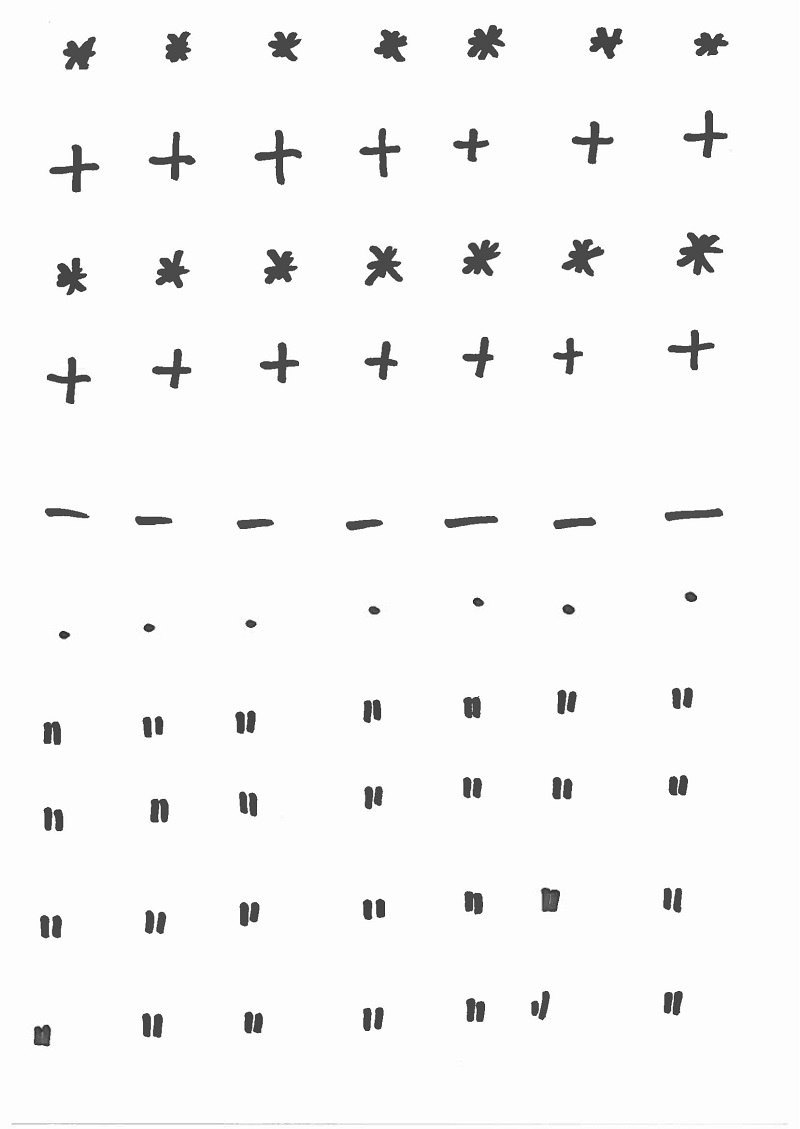 * * * * * * *
+ + + + + + +
* * * * * * *
+ + + + + + +
- - - - - - -
. . . . . . .
" " " " " " "
" " " " " " "
" " " " " " "
" " " " " " "